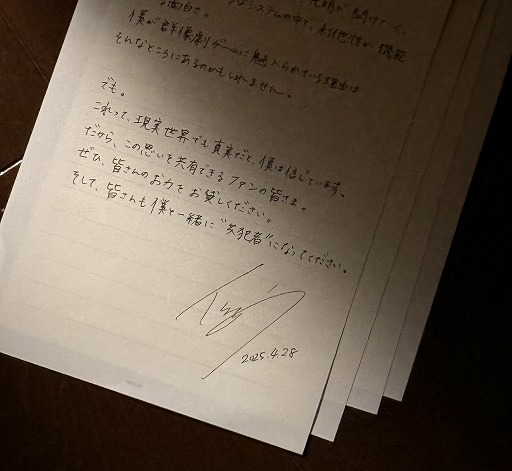 な面白さ。
システムの中で、利他性が機能
僕が群像劇ゲームに魅入られている理由は
そんなところにあるのかもしれません。
でも。
これって、現実世界でも真実だと、僕は信じています。
だから、この思いを共有できるファンの皆さま。
ぜひ、皆さんのお力をお貸しください。
そして、皆さんも僕と一緒に"共犯者"になってください。
2025.4.28